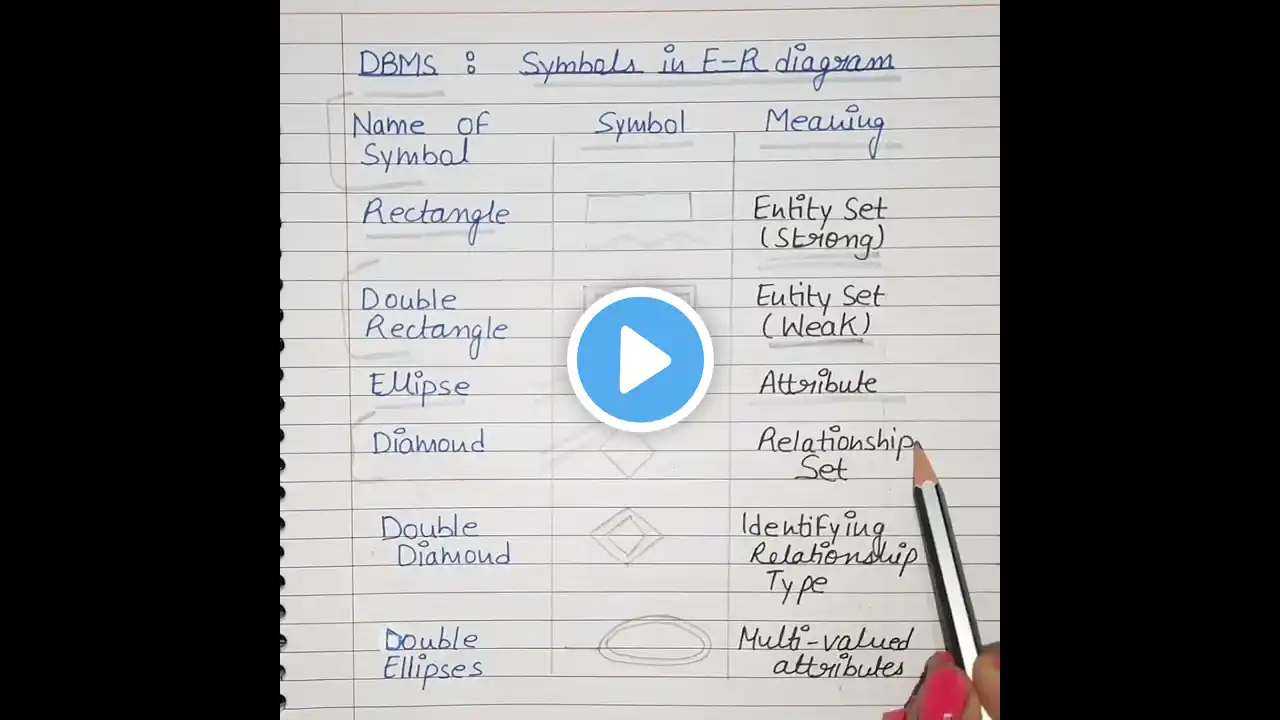 DBMS : Symbols in E-R diagram
Name of Symbol Meaning
Symbol
Rectangle Entity Set
(Strong)
Double Entity Set
Rectangle (Weak)
Ellipse Attribute
Diamond Relationship
Set
Double Identifying
Diamond Relationship
Type
Double Multi-valued
Ellipses attributes